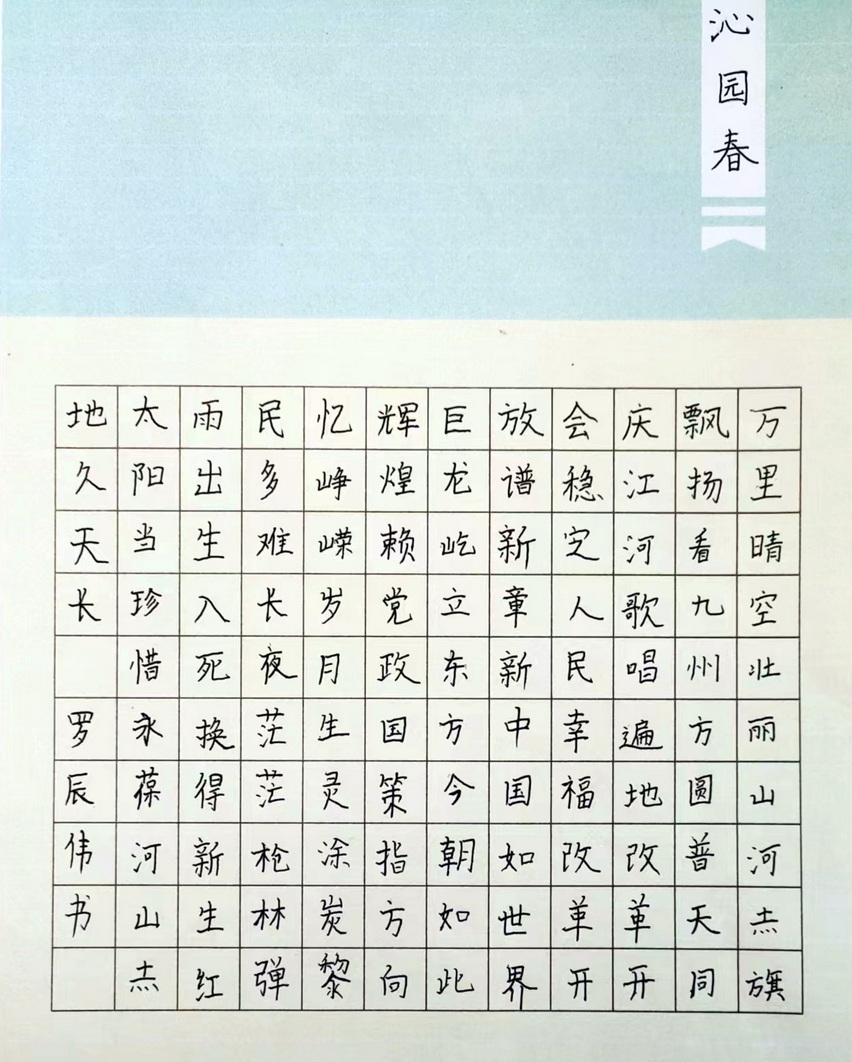 沁园春
万里晴空壮丽山河赤旗
飘扬看九州方圆普天同
庆江河歌唱遍地改革开
会稳定人民幸福改革开
放谱新章新中国如世界
巨龙屹立东方今朝如此
辉煌赖党政国策指方向
忆峥嵘岁月生灵涂炭黎
民多难长夜茫茫枪林弹
雨出生入死换得新生红
太阳当珍惜永葆河山赤
地久天长 罗辰伟书